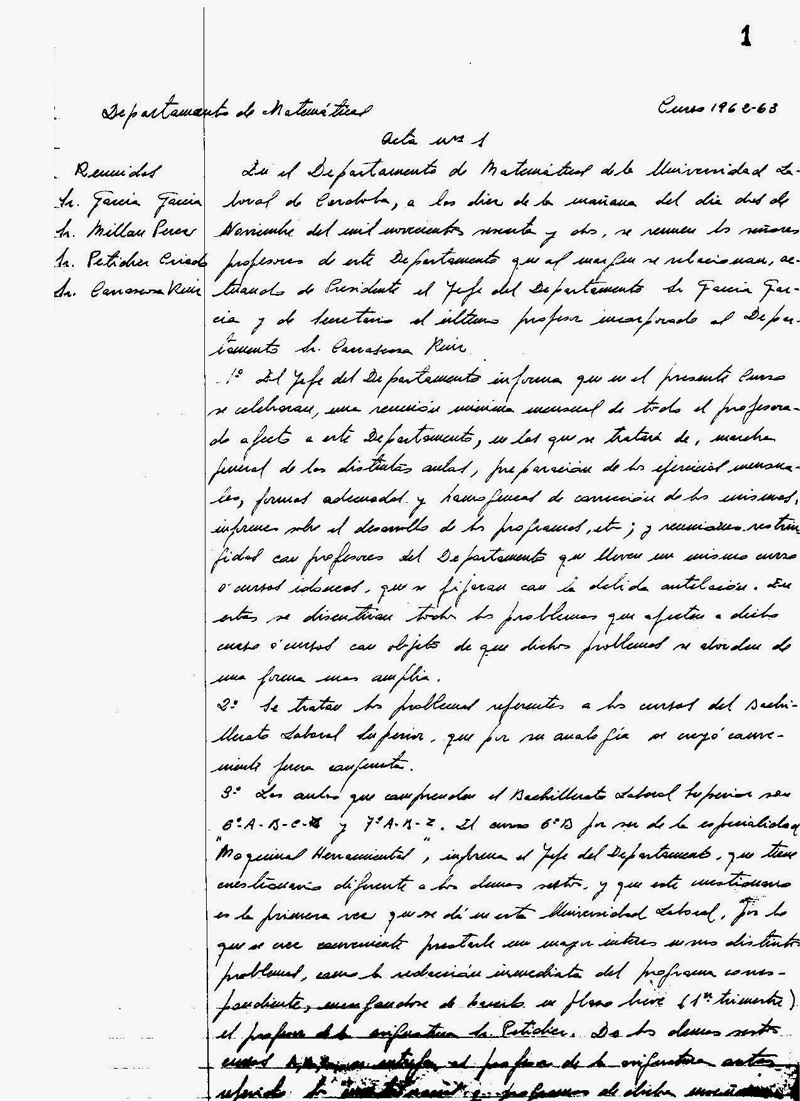 1
Departamento de Matemáticas
Curso 1962-63
Acta nº 1
Reunidos
Sr. García García
Sr. Millan Perez
Sr. Petidier Criado
Sr. Carrascosa Ruiz
En el Departamento de Matemáticas de la Universidad La-
boral de Cordoba, a las diez de la mañana del dia dos de
Noviembre del mil novecientos sesenta y dos, se reunen los señores
profesores de este Departamento que al margen se relacionan, ac-
tuando de Presidente el Jefe del Departamento Sr Garcia Gar-
cia y de Secretario el último profesor incorporado al Depar-
tamento Sr. Carrascosa Ruiz.
1º El Jefe del Departamento informa que en el presente Curso
se celebraran, una reunión minima mensual de todo el profesora-
do afecto a este Departamento, en las que se tratará de, marcha
general de las distintas aulas, preparación de los ejercicios mensua-
les, formas adecuadas y homogeneas de corrección de los mismos,
informes sobre el desarrollo de los programas, etc; y reuniones restrin-
gidas con profesores del Departamento que lleven un mismo curso
ó cursos idoneos, que se fijaran con la debida antelación. En
estas se discutiran todos los problemas que afectan a dicho
curso ó cursos con objeto de que dichos problemas se aborden de
una forma mas amplia.
2º Se tratan los problemas referentes a los cursos del Bachi-
llerato Laboral Superior, que por su analogía se creyó conve-
niente fuera conjunta.
3º Las aulas que comprenden el Bachillerato Laboral Superior son
6º A-B-C- y 7º A-B-Z. El curso 6ºB por ser de la especialidad
"Maquinas Herramientas", informa el Jefe del Departamento, que tiene
cuestionario diferente a los demas sextos, y que este cuestionario
es la primera vez que se dá en esta Universidad Laboral, por lo
que se cree conveniente prestarle un mayor interes en sus distintos
problemas, como la redacción inmediata del programa corres-
pondiente, encargandose de hacerlo en plazo breve (1er trimestre)
el profesor de la asignatura Sr. Petidier. De los demas sextos
cursos se entrega el profesor de la asignatura antes
referido y programas de dicha